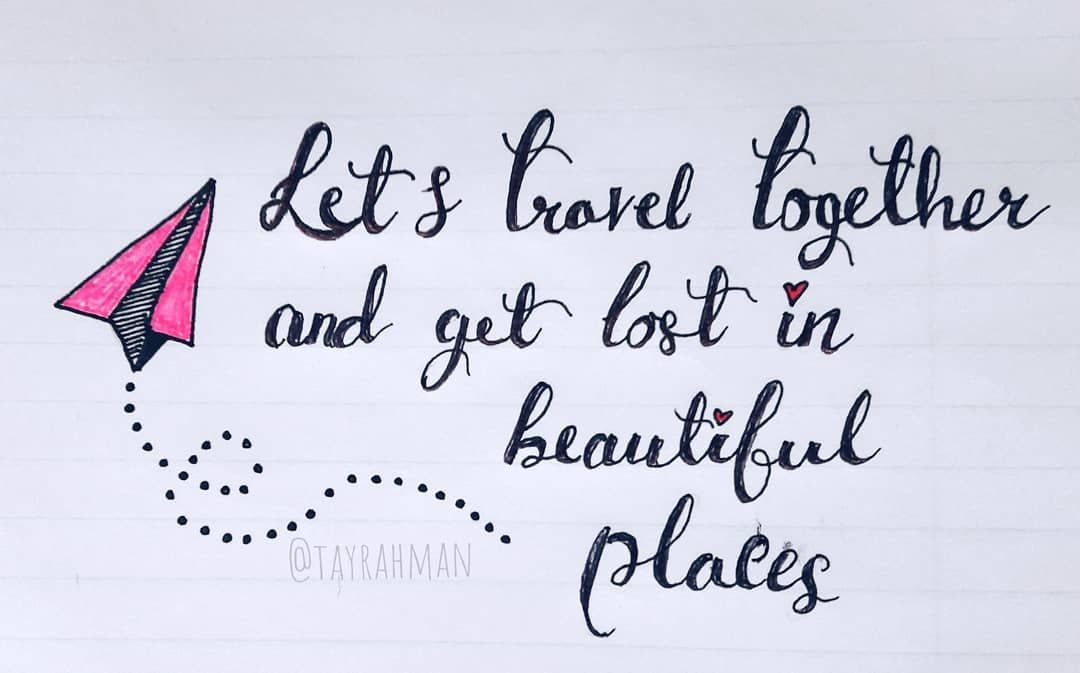 Let's travel together
and get lost in
beautiful
places
@TAYRAHMAN